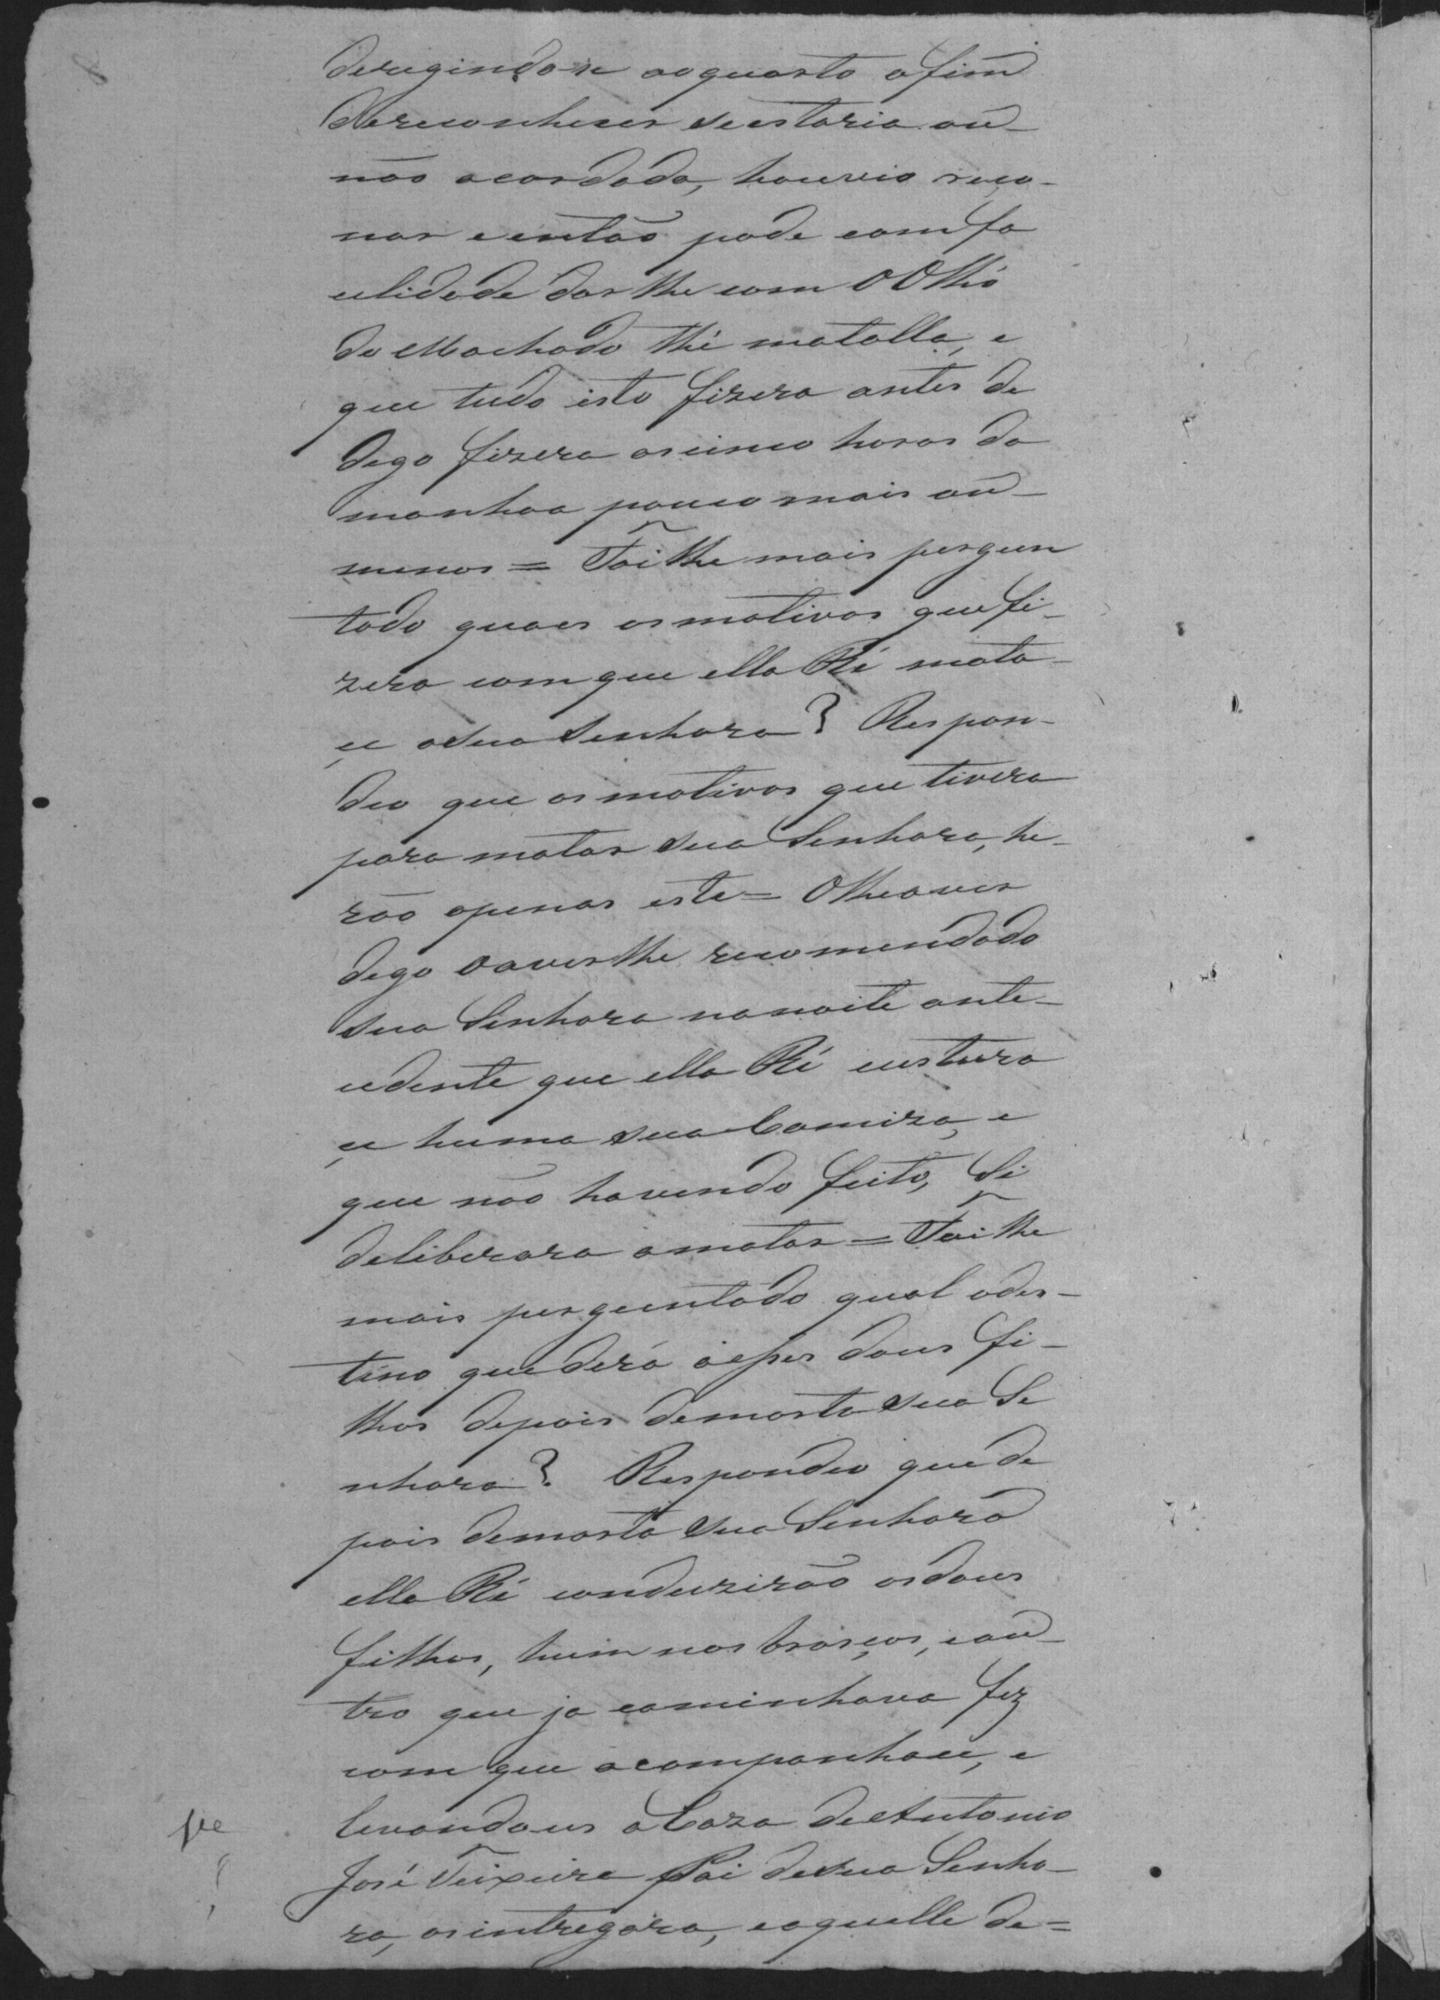 derigindo se ao quarto a fim
de reconhecer se estaria ou
não acordada, houvio reço-
nar e então pode com fa
cilidade dar lhe com o Olho
do Machado thé matalla, e
que tudo isto fizera antes de
digo fizera as cinco horas da
manhaa pouco mais ou
menos = Foi lhe mais pergun
tado quaes os motivos que fi-
zera com que ella Ré mata-
çe a sua Senhora? Respon-
deu que os motivos que tivera
para matar sua Senhora, he-
rão apenas este = O lhe aver
digo o aver lhe recomendado
sua Senhora na noite ante-
cedente que ella Ré custura
çe huma sua Camiza, e
que não havendo feito, Si
deliberara a matar = Foi lhe
mais perguntado qual o des-
tino que dera a esses dous fi-
lhos depois de morta sua Se
nhora? Respondeu que de
pois de morta sua Senhora
ella Ré conduzirão os dous
filhos, hum nos braços, e ou-
tro que ja caminhava fez
com que acompanhace, e
levando us a Caza de Antonio
José Teixeira Pai de sua Senho-
ra, os intregára, e aquelle de=